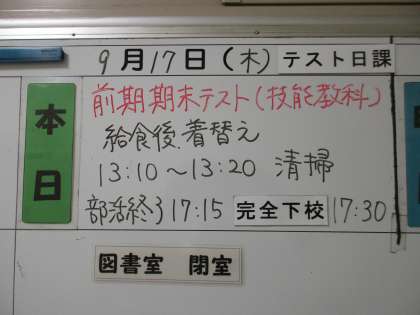 9月17日(木) テスト日課
本日
前期期末テスト(技能教科)
給食後、着替え
13:10～13:20 清掃
部活終了17:15 完全下校17:30
図書室 閉室